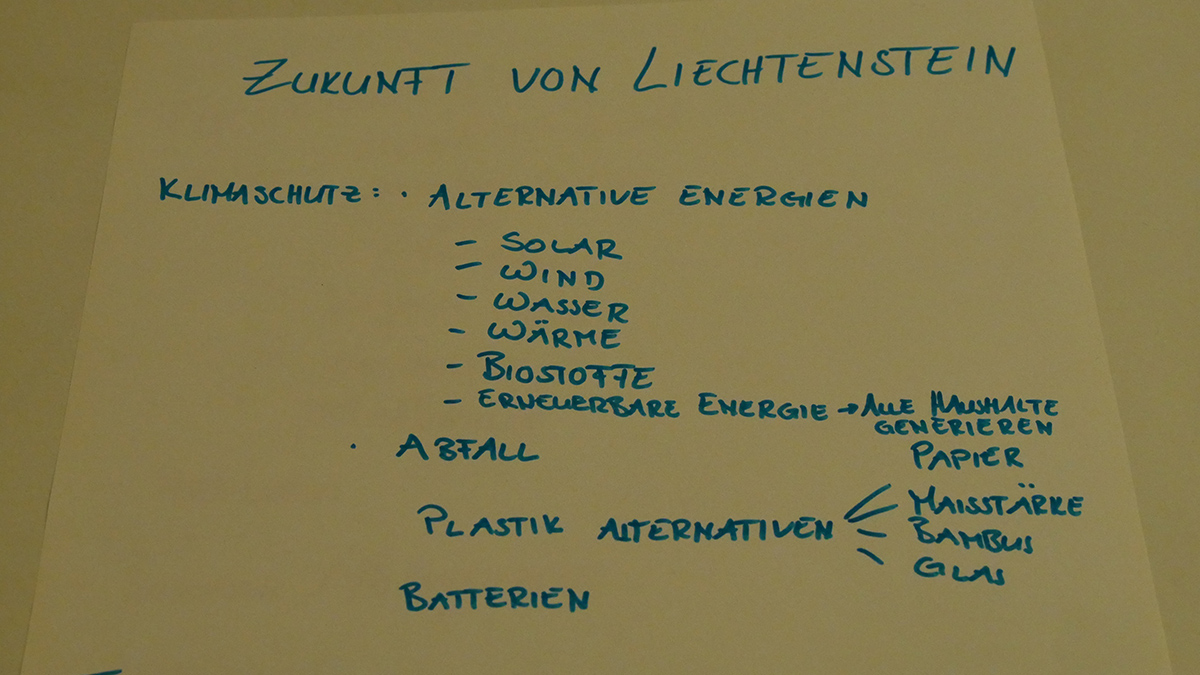 ZUKUNFT VON LIECHTENSTEIN
KLIMASCHUTZ: · ALTERNATIVE ENERGIEN
- SOLAR
- WIND
- WASSER
- WÄRME
- BIOSTOFFE
- ERNEUERBARE ENERGIE → ALLE HAUSHALTE
GENERIEREN
· ABFALL
PAPIER
PLASTIK ALTERNATIVEN
MAISSTÄRKE
BAMBUS
GLAS
BATTERIEN